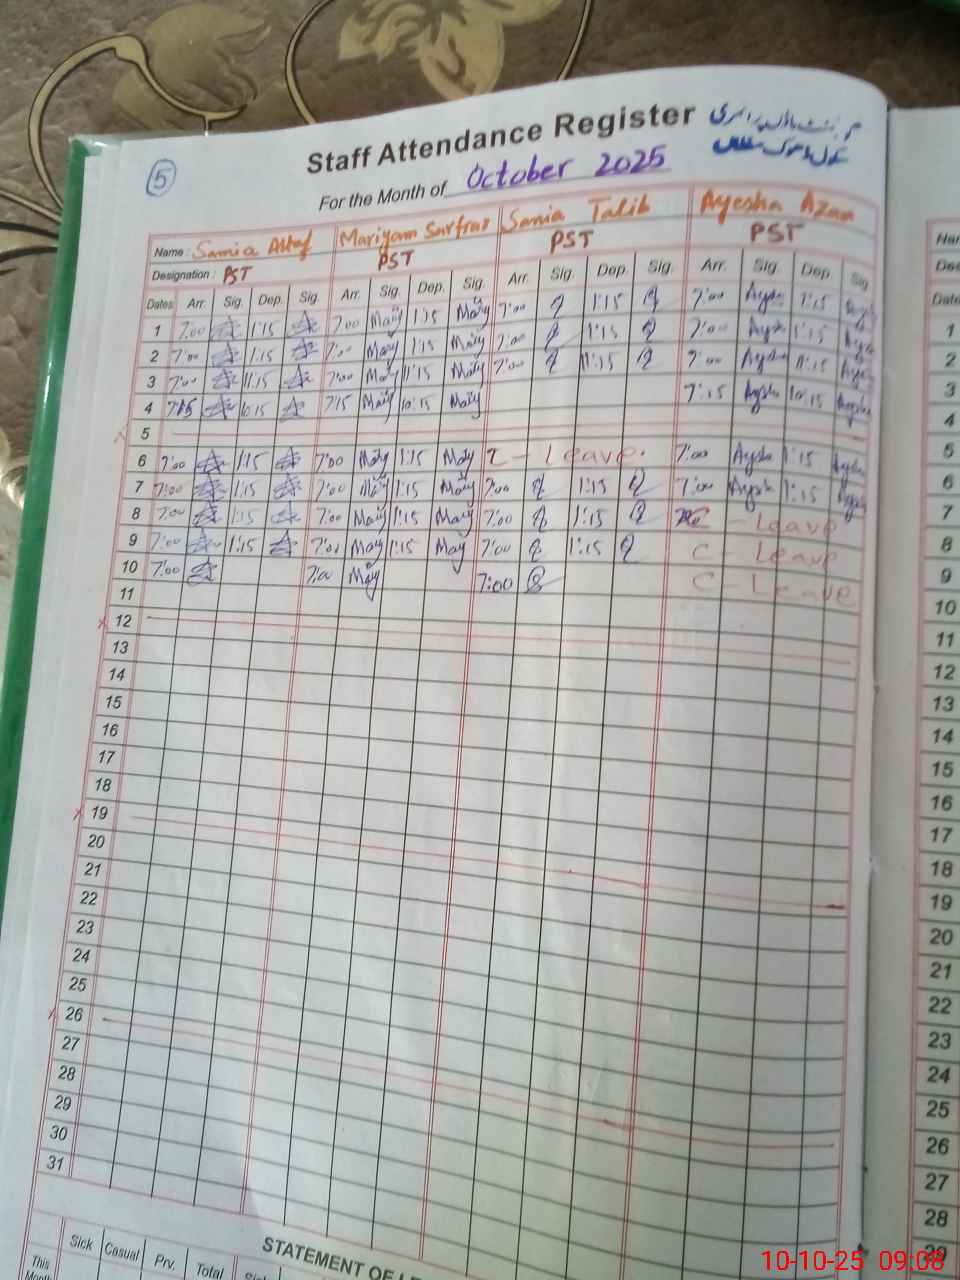 5
Staff Attendance Register
For the Month of October 2025
Name: Samia Altaf Mariyam Sarfraz Sania Talib Ayesha Azam
Designation: PST PST PST PST
Dates Arr. Sig. Dep. Sig. Arr. Sig. Dep. Sig. Arr. Sig. Dep. Sig. Arr. Sig. Dep. Sig
1 7:00 1:15 7:00 1:15 7:00 1:15 7:00 Aysh 1:15
2 7:00 1:15 7:00 1:15 7:00 1:15 7:00 Aysh 1:15
3 7:00 11:15 7:00 11:15 7:00 11:15 7:00 Aysh 11:15
4 7:15 10:15 7:15 10:15 7:15 Aysh 10:15
x 5
6 7:00 1:15 7:00 1:15 C - Leave. 7:00 Aysh 1:15
7 7:00 1:15 7:00 1:15 7:00 1:15 7:00 Aysh 1:15
8 7:00 1:15 7:00 1:15 7:00 1:15 C - Leave
9 7:00 1:15 7:00 1:15 7:00 1:15 C - Leave
10 7:00 7:00 7:00 C - Leave
11
x 12
13
14
15
16
17
18
x 19
20
21
22
23
24
25
x 26
27
28
29
30
31
STATEMENT OF
Sick Casual Prv. Total
This
Month
Dates
1
2
3
4
5
6
7
8
9
10
11
12
13
14
15
16
17
18
19
20
21
22
23
24
25
26
27
28
29
10-10-25 09:08